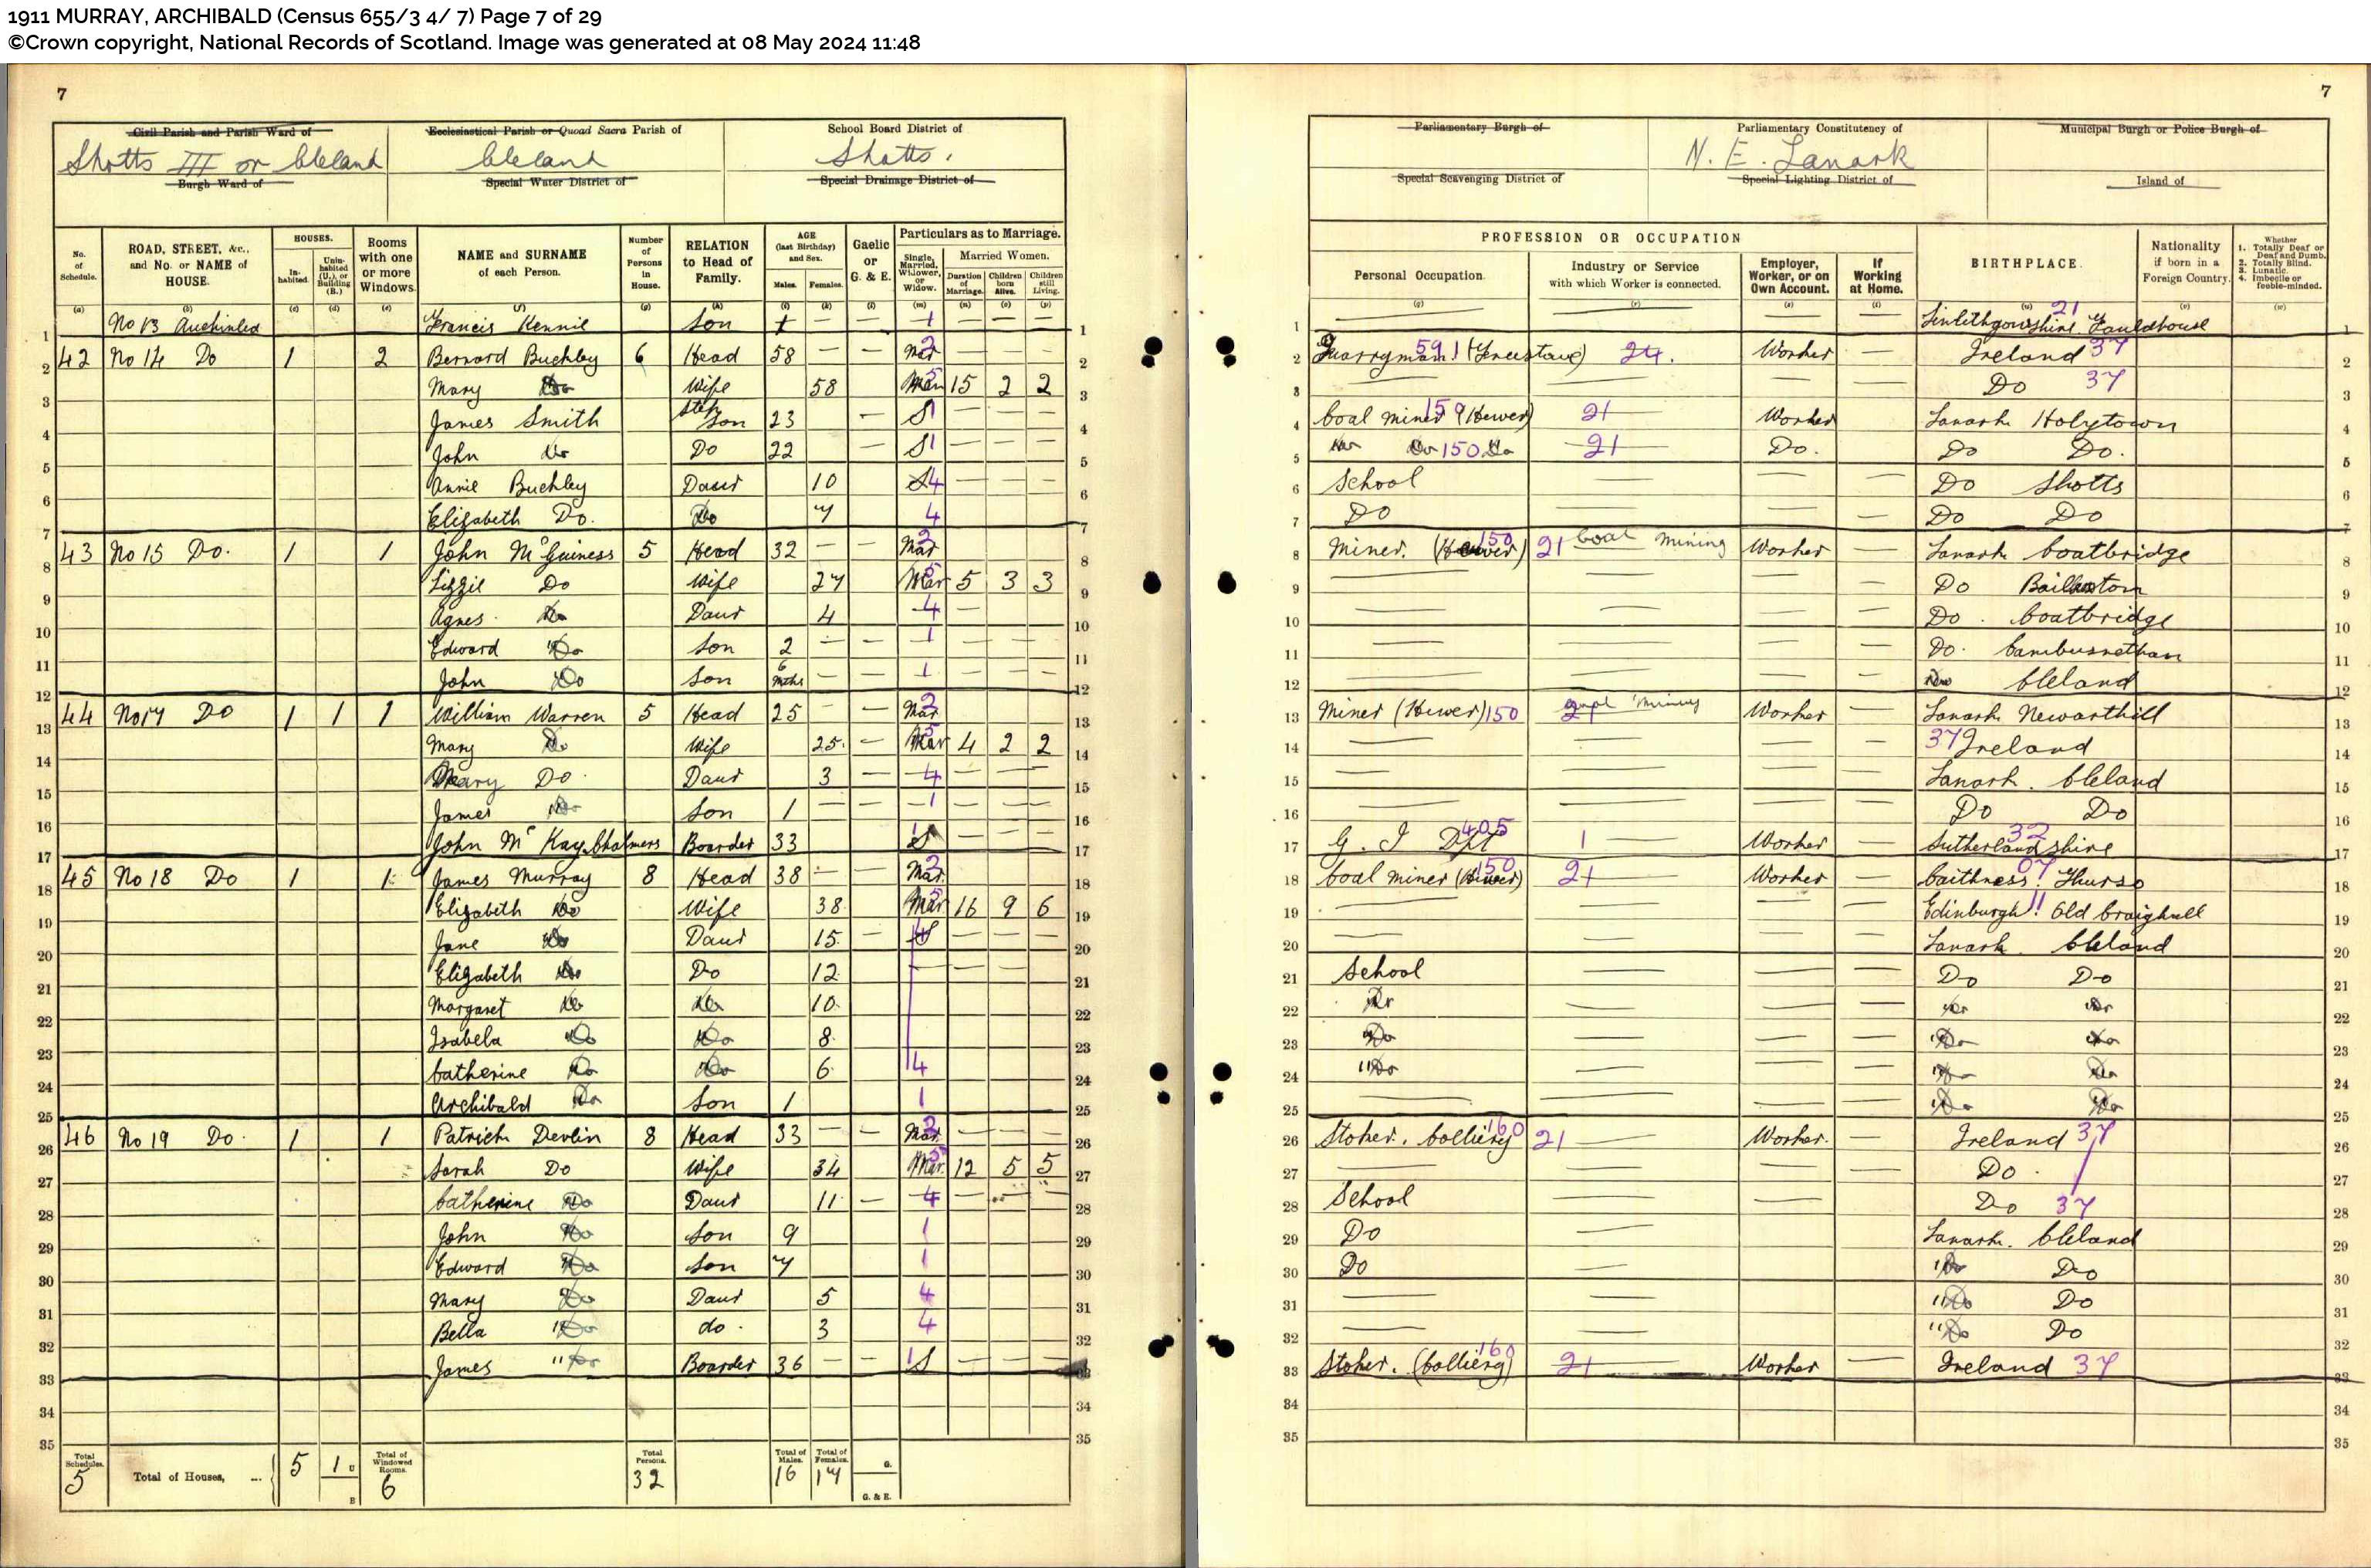 1911 MURRAY, ARCHIBALD (Census 655/3 4/ 7) Page 7 of 29
©Crown copyright, National Records of Scotland. Image was generated at 08 May 2024 11:48
7
7
Civil Parish and Parish Ward of
Shotts III or Cleland
Burgh Ward of
Ecclesiastical Parish or Quoad Sacra Parish of
Cleland
Special Water District of
School Board District of
Shotts.
Special Drainage District of
Parliamentary Burgh of
Special Scavenging District of
Parliamentary Constitutency of
N. E. Lanark
Special Lighting District of
Municipal Burgh or Police Burgh of
Island of
No. of Schedule. (a)
ROAD, STREET, &c., and No. or NAME of HOUSE. (b)
HOUSES. Inhabited. (c) Uninhabited (U.), or Building (B.) (d)
Rooms with one or more Windows. (e)
NAME and SURNAME of each Person. (f)
Number of Persons in House. (g)
RELATION to Head of Family. (h)
AGE (last Birthday) and Sex. Males. (i) Females. (k)
Gaelic or G. & E. (l)
Particulars as to Marriage.
Single, Married, Widower, or Widow. (m)
Married Women. Duration of Marriage. (n) Children born Alive. (o) Children still Living. (p)
PROFESSION OR OCCUPATION
Personal Occupation. (q)
Industry or Service with which Worker is connected. (r)
Employer, Worker, or on Own Account. (s)
If Working at Home. (t)
BIRTHPLACE. (u)
Nationality if born in a Foreign Country. (v)
Whether 1. Totally Deaf or Deaf and Dumb. 2. Totally Blind. 3. Lunatic. 4. Imbecile or feeble-minded. (w)
1 No 13 Auchinlea Francis Rennie Son 1 1 Linlithgowshire Fauldhouse 21
2 42 No 14 Do 1 2 Bernard Buchley 6 Head 58 — — Mar 2 Quarryman (Freestone) 591 24. Worker — Ireland 37
3 Mary Do Wife 58 Mar 5 15 2 2 Do 37
4 James Smith Step Son 23 — S 1 Coal miner (Hewer) 150 21 Worker Lanark Holytown
5 John Do Do 22 — S 1 Do Do Do 150 21 Do. Do Do.
6 Annie Buchley Daur 10 S 4 School Do Shotts
7 Elizabeth Do. Do 7 4 Do Do Do
8 43 No 15 Do. 1 1 John McGuiness 5 Head 32 — — Mar 2 Miner. (Hewer) 150 21 Coal Mining Worker — Lanark Coatbridge
9 Lizzie Do Wife 27 Mar 5 5 3 3 Do Bailleston
10 Agnes Do Daur 4 4 Do. Coatbridge
11 Edward Do Son 2 1 Do. Cambusnethan
12 John Do Son 6 mths 1 Do Cleland
13 44 No 17 Do 1 1 1 William Warren 5 Head 25 — — Mar 2 Miner (Hewer) 150 21 Coal Mining Worker — Lanark Newarthill
14 Mary Do Wife 25. — Mar 5 4 2 2 37 Ireland
15 Mary Do Daur 3 — 4 Lanark. Cleland
16 James Do Son 1 1 Do Do
17 John McKay Chalmers Boarder 33 S 1 G. I Dpt 405 1 Worker — Sutherlandshire 32
18 45 No 18 Do 1 1 James Murray 8 Head 38 — — Mar 2 Coal miner (Hewer) 150 21 Worker — Caithness. Thurso 07
19 Elizabeth Do Wife 38 Mar 5 16 9 6 Edinburgh 11 Old Craighall
20 Jane Do Daur 15 — S 4 Lanark. Cleland
21 Elizabeth Do Do 12 School Do Do
22 Margaret Do Do 10. Do Do Do
23 Isabela Do Do 8. Do Do Do
24 Catherine Do Do 6. 4 Do Do Do
25 Archibald Do Son 1 1 Do Do
26 46 No 19 Do. 1 1 Patrick Devlin 8 Head 33 — — Mar 2 Stoker. Colliery 160 21 Worker. — Ireland 37
27 Sarah Do Wife 34 Mar. 5 12 5 5 Do.
28 Catherine Do Daur 11 — 4 School Do 37
29 John Do Son 9 1 Do Lanark. Cleland
30 Edward Do Son 7 1 Do Do Do
31 Mary Do Daur 5 4 Do Do
32 Bella Do do. 3 4 Do Do
33 James Do Boarder 36 — — 1 S Stoker. (Colliery) 160 21 Worker — Ireland 37
34
35
Total Schedules. 5
Total of Houses, ... 5 1 U B
Total of Windowed Rooms. 6
Total Persons. 32
Total of Males. 16
Total of Females. 17
G.
G. & E.